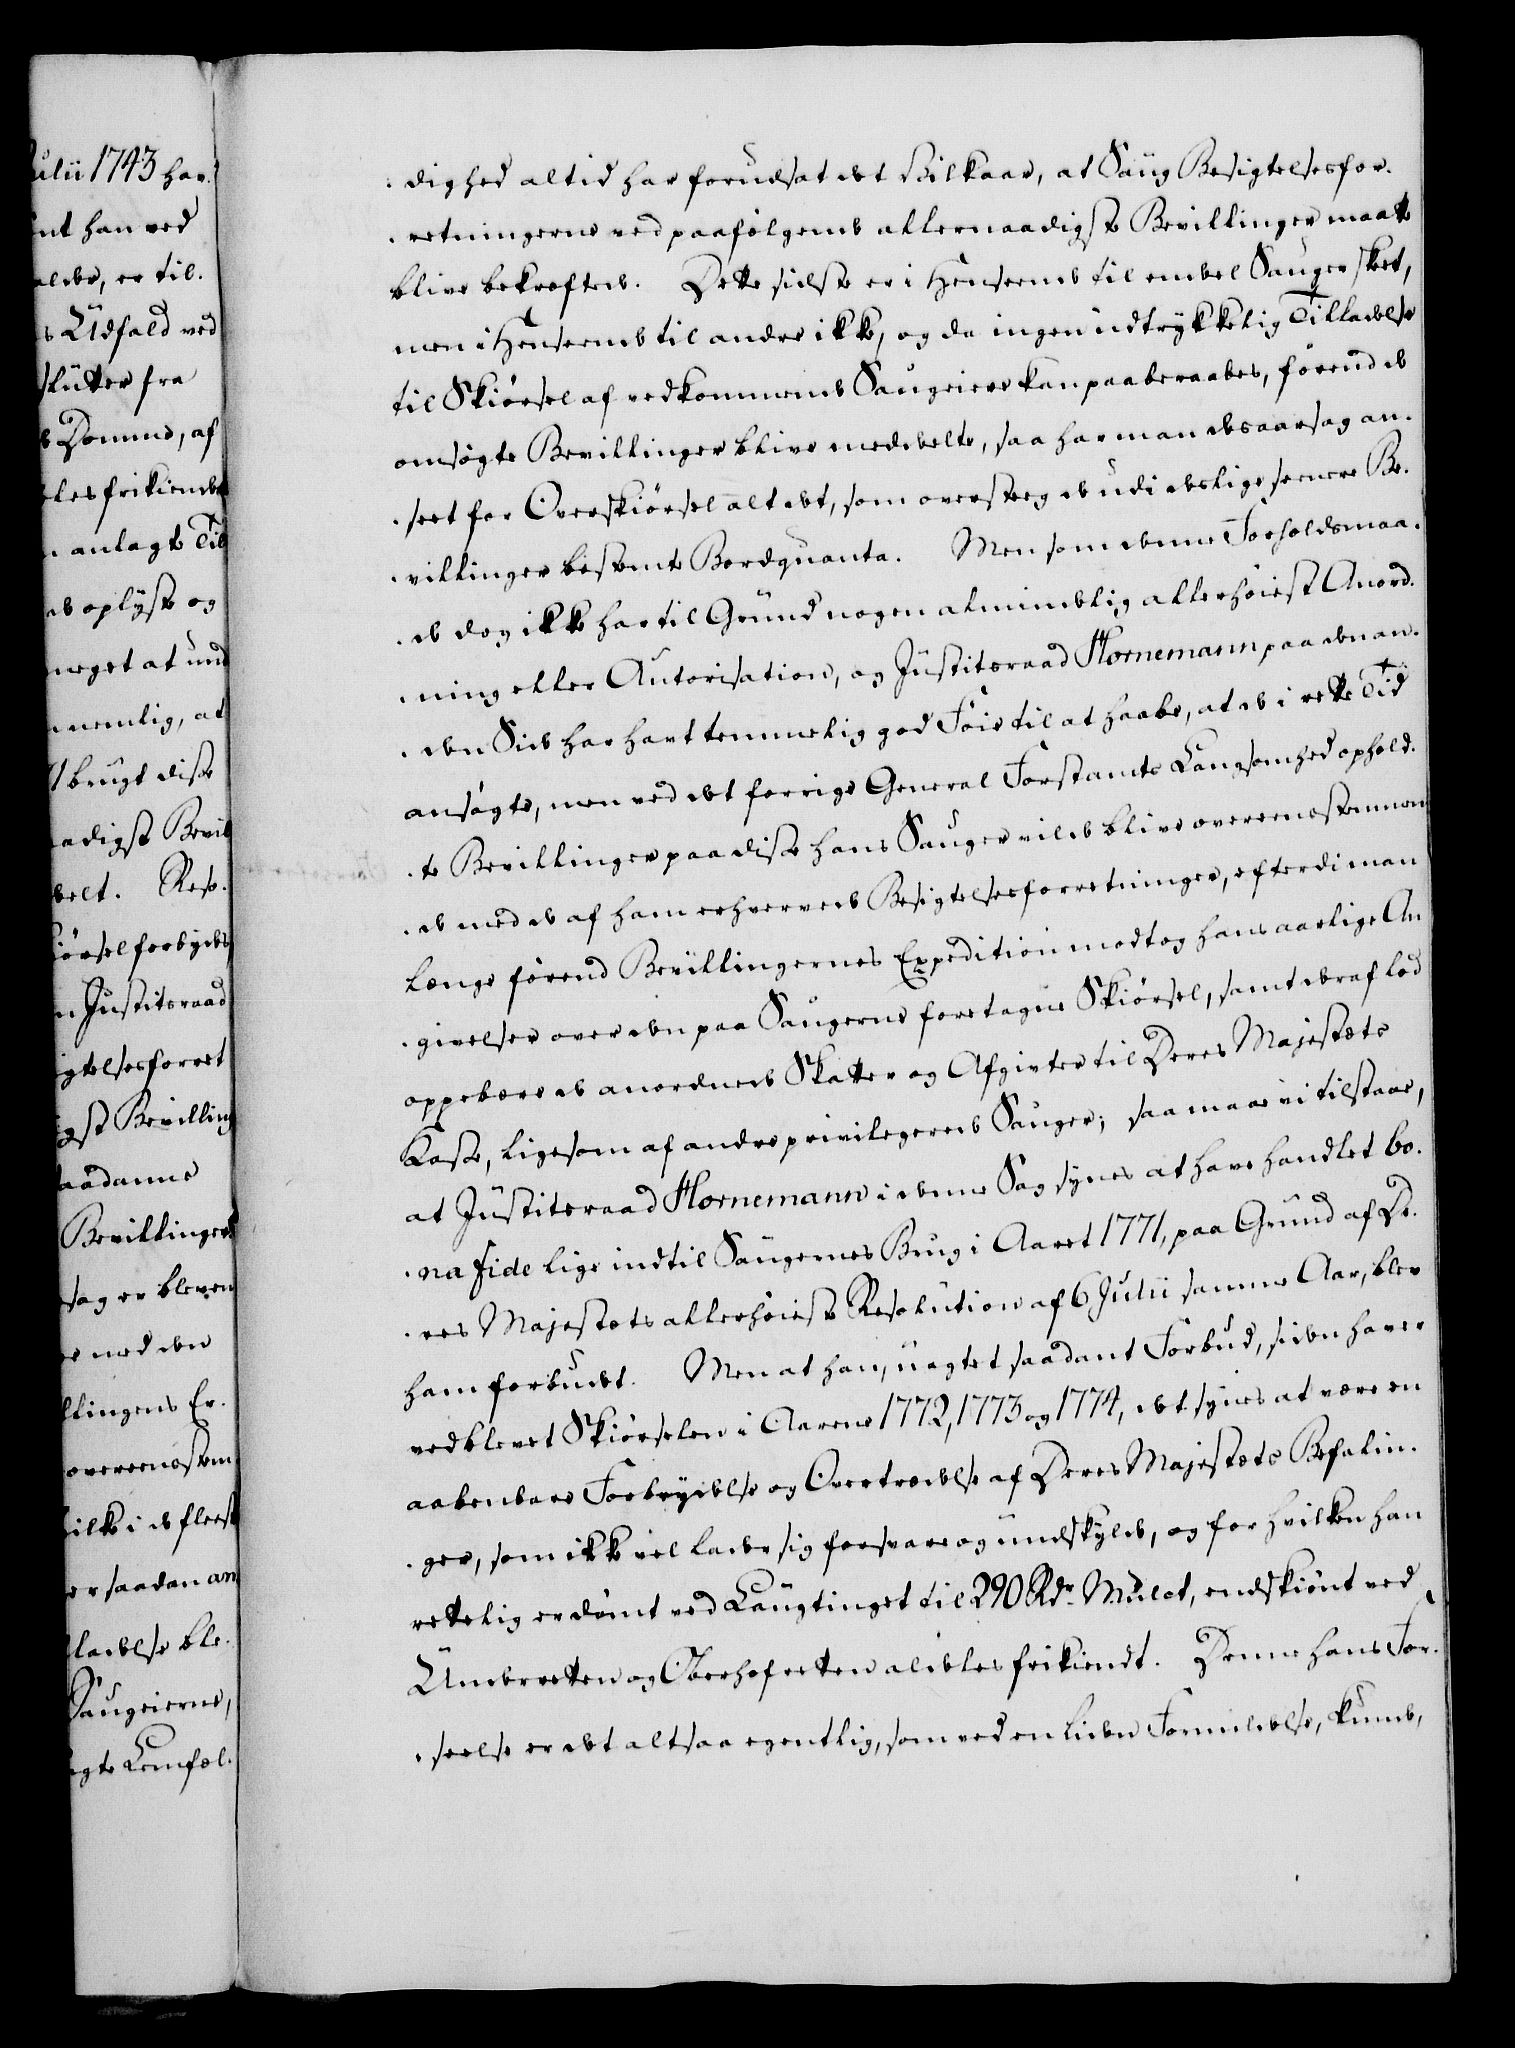 ulii 1743 har
nt han ved
alder, er til.
s Udfald ved
slutter fra
e Domme, af
eles frikiendes
n anlagte Til
de oplyste og
meget at und
nemlig, at
brugt disse
aadigst Bevil
delt. Reso.
iørsel forbydes
n Justitsraad
igtelsesforret
igst Bevilling
aadanne
Bevillinger
sag er bleven
ved den
llingens Er.
overeenstem
ilke i de fleest
er saadan an
ladelse ble.
Saugeierne,
gte Lemfæl.
dighed altid har forudsat det Vilkaar, at Saug Besigtelsesfor.
retningerne ved paafølgende allernaadigste Bevillinger maatte
blive bekræftede. Dette sidste er i Henseende til endeel Sauger skeet,
men i Henseende til andre ikke, og da ingen udtrykkelig Tilladelse
til Skiørsel af vedkommende Saugeiere kan paaberaabes, førend de
omsøgte Bevillinger blive meddeelte, saa har man desaarsag an.
seet for Overskiørsel alt det, som oversteeg de udi deslige seenere Be.
villinger bestemte Bordquanta. Men som denne Forholdsmaa.
de dog ikke har til Grund nogen almindelig allerhøiest Anord.
ning eller Autorisation, og Justitsraad Hornemann paa den an.
den Side har havt temmelig god Føie til at haabe, at de i rette Tid
ansøgte, men ved det forrige General Forstamts Langsomhed ophold.
te Bevillinger paa disse hans Sauger vilde blive overeensstemmen
de med de af ham erhvervede Besigtelsesforretninger, efterdi man
længe førend Bevillingernes Expedition modtog hans aarlige An
givelser over den paa Saugerne foretagne Skiørsel, samt deraf lod
oppebære de anordnede Skatter og Afgivter til Deres Majestæts
Kasse, ligesom af andre privilegerede Sauger; saa maae vi tilstaae,
at Justitsraad Hornemann i denne Sag synes at have handlet bo.
na fide lige indtil Saugernes Brug i Aaret 1771, paa Grund af De.
res Majestæts allerhøieste Resolution af 6 Julii samme Aar, blev
ham forbudet. Men at han, uagtet saadant Forbud, siden haver
vedblevet Skiørselen i Aarene 1772, 1773 og 1774, det synes at være en
aabenbare Forbrydelse og Overtrædelse af Deres Majestæts Befalin.
ger, som ikke vel lader sig forsvare og undskylde, og for hvilken han
rettelig er dømt ved Laugtinget til 290 Rdr. Mulct, endskiønt ved
Underretten og Oberhofretten aldeles frikiendt. Denne hans For.
seelse er det altsaa egentlig, som ved en liden Formildelse, kunde,